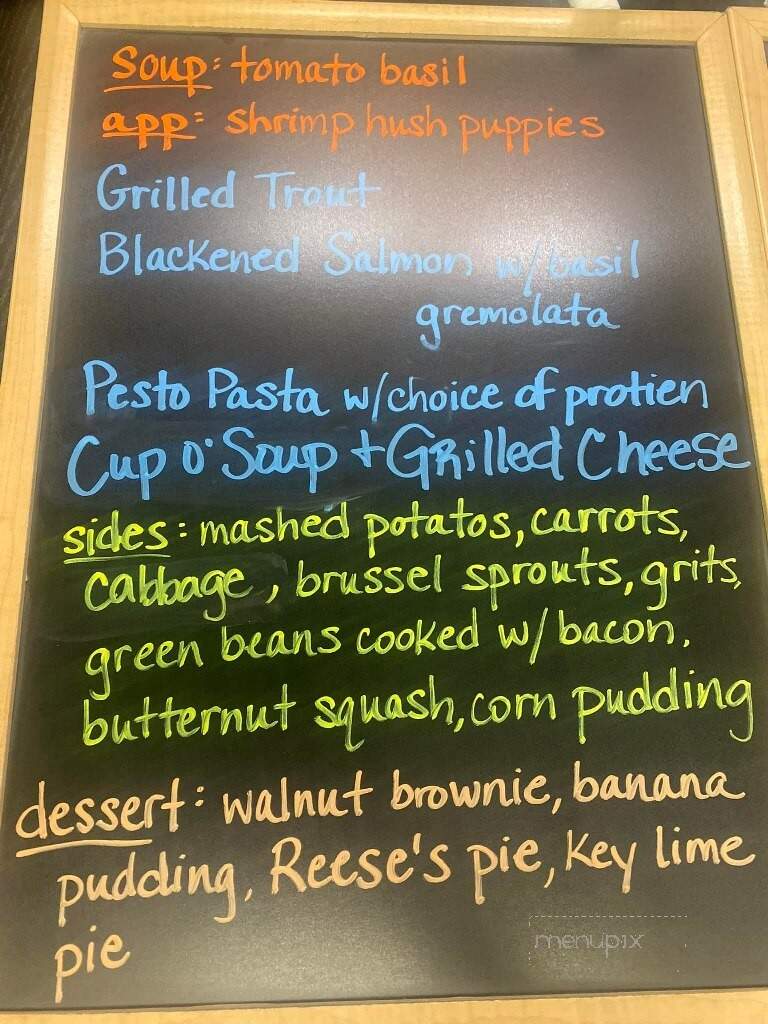 Soup: tomato basil
app: shrimp hush puppies
Grilled Trout
Blackened Salmon w/basil
gremolata
Pesto Pasta w/choice of protien
Cup o' Soup + Grilled Cheese
sides: mashed potatos, carrots,
cabbage, brussel sprouts, grits,
green beans cooked w/ bacon,
butternut squash, corn pudding
dessert: walnut brownie, banana
pudding, Reese's pie, Key lime
pie
menupix